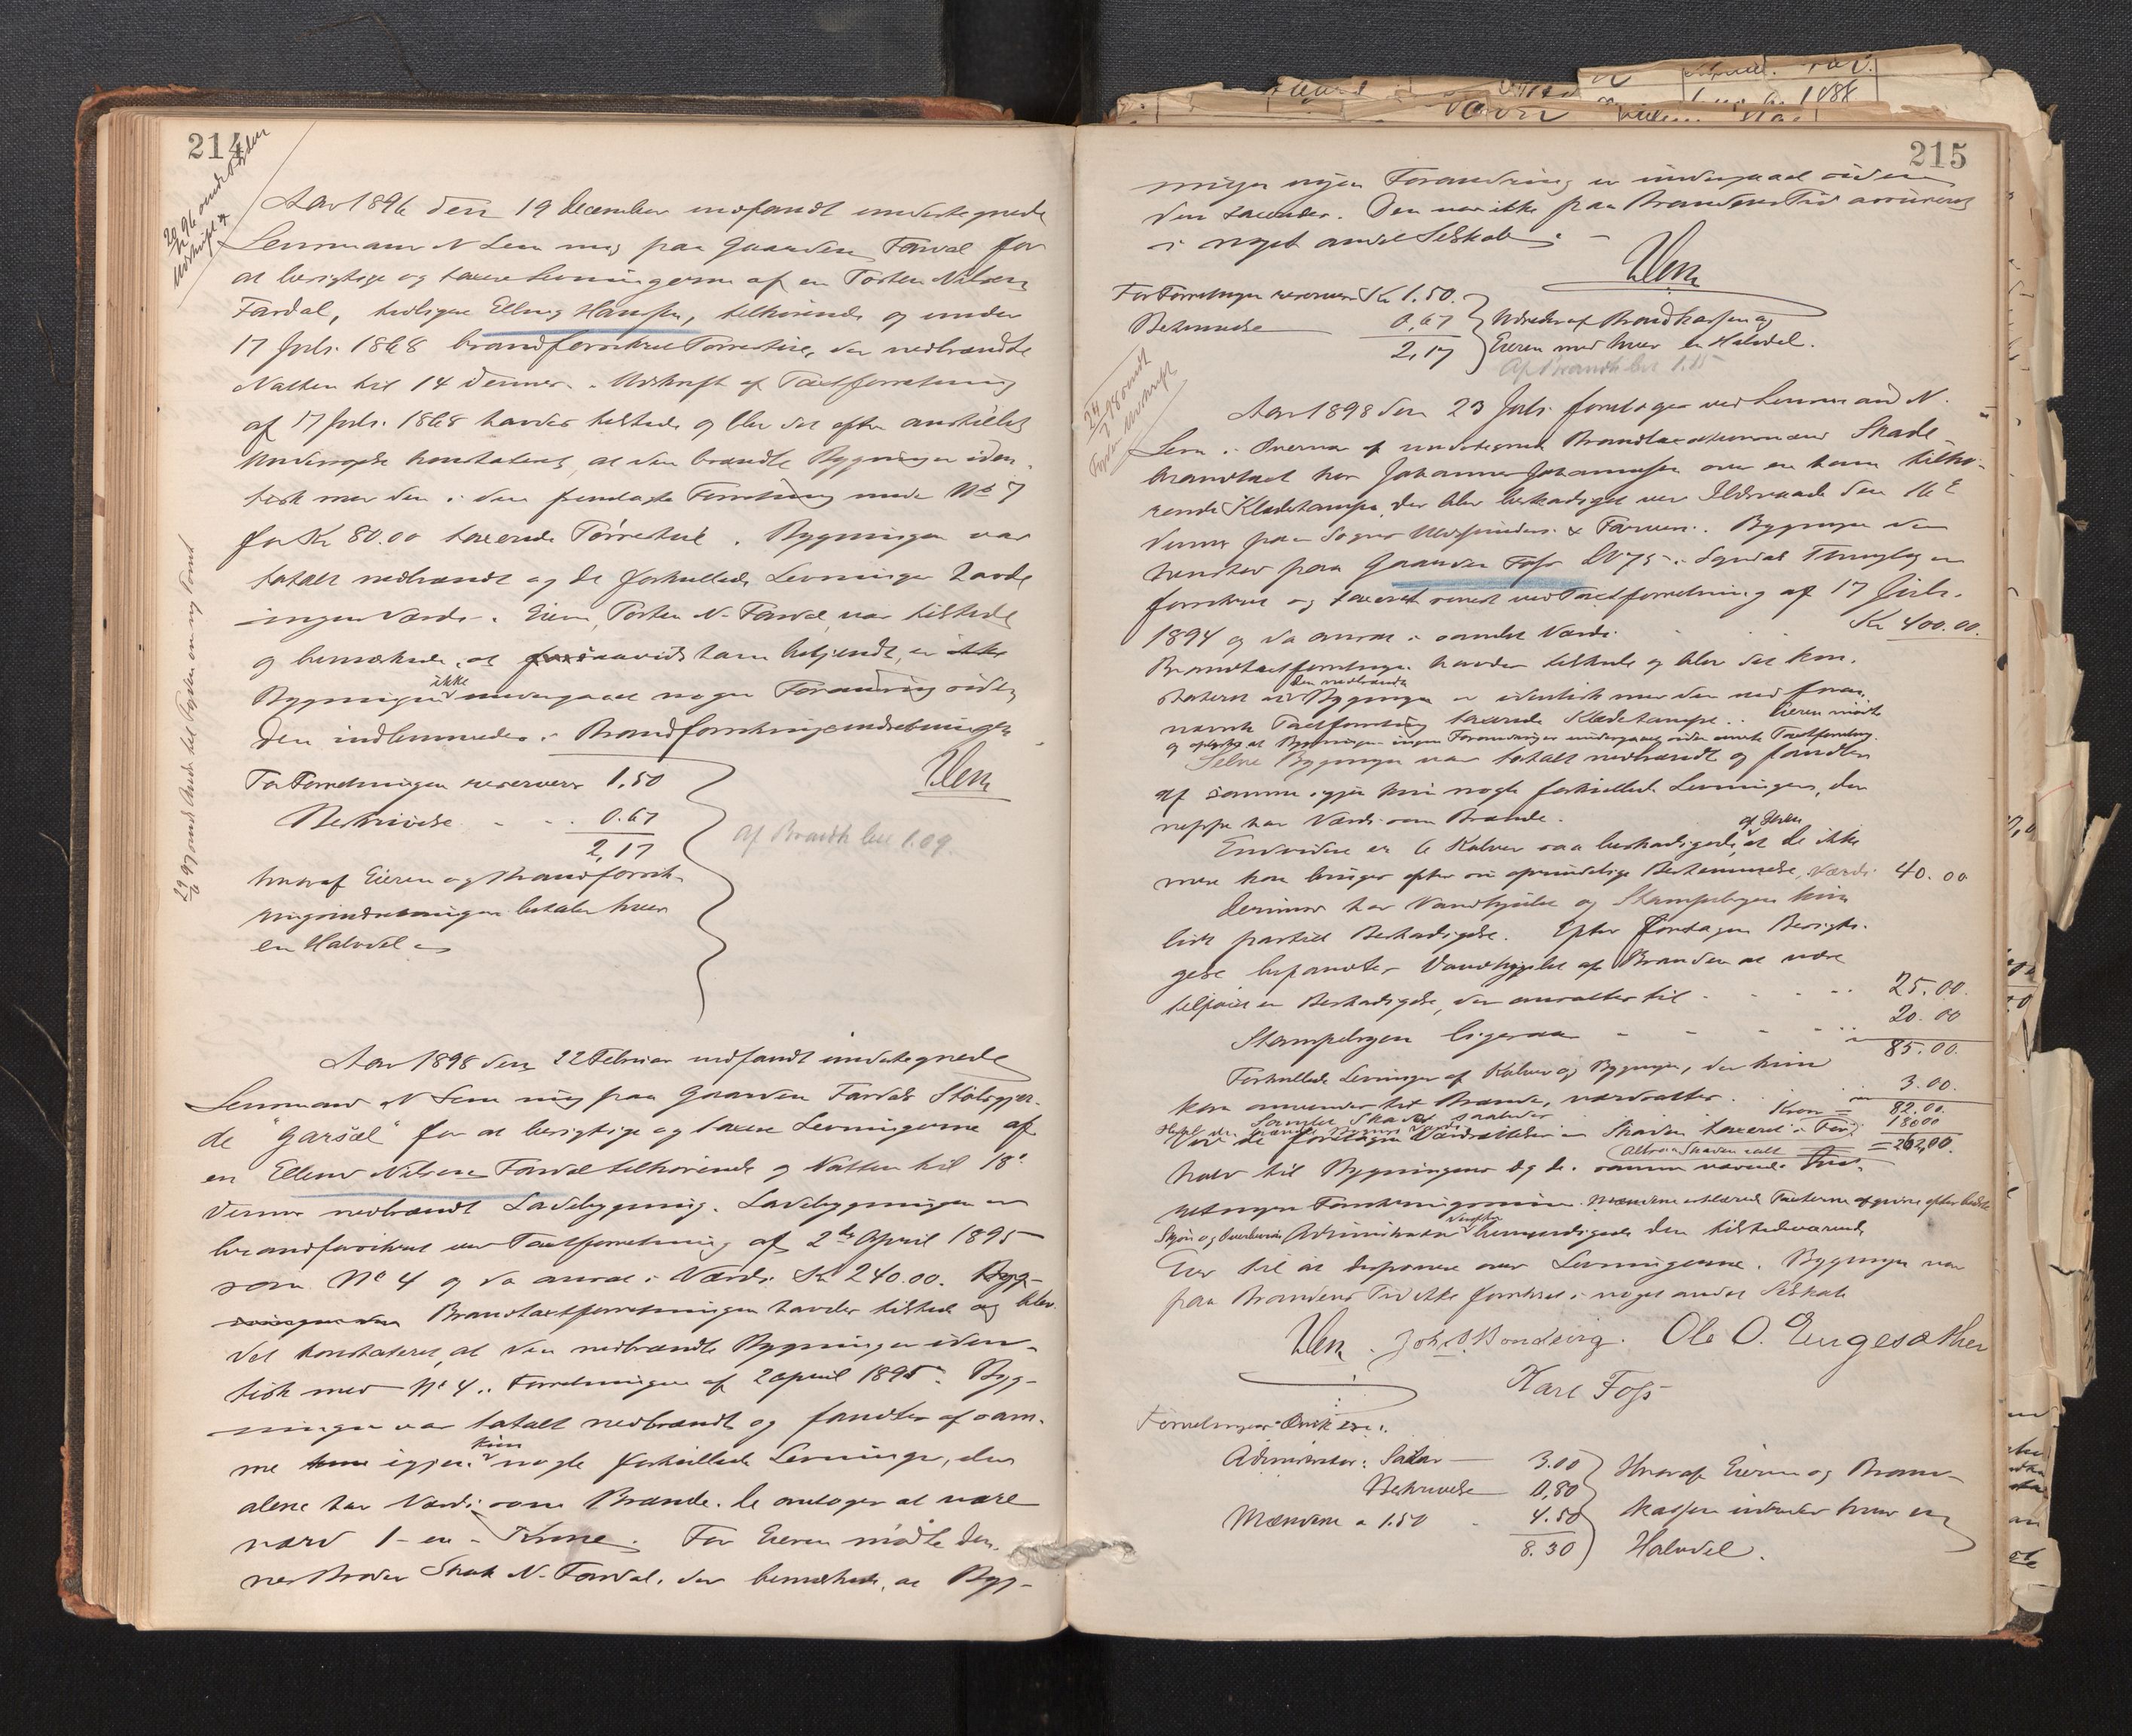 214
Aar 1896 den 19 December indfandt undertegnede
Lensmand N Lem mig paa Gaarden Fardal for
at besigtige og taxere Levningerne af en Torsten Nilsen
Fardal, tidligere Elling Hansen, tilhørende og under
17 Juli 1868 brandforsikret Tørrestue, der nedbrændte
Natten til 14 dennes. Udskrift af Taxtforretning
af 17 Juli 1868 havdes tilstede og blev det efter anstillet
Undersøgelse konstateret, at den brændte Bygning er iden-
tisk med den i den Forretning under No 7
for Kr 80.00 taxerede Tørrestue. Bygningen var
totalt nedbrændt og de forkullede Levninger havde
ingen Værdi. Eieren, Torsten N. Fardal, var tilstede
og bemærkede, at saavidt ham bekjendt, er
Bygningen ikke undergaaet nogen Forandring siden
den indlemmedes i Brandforsikringsindretningen
N Lem
For Forretningen reserveres 1,50
Beskrivelse - - 0.67
2,17
Af Brandk bet 1.09.
hvoraf Eieren og Brandforsik-
ringsindretningen betaler hver
en Halvdel
29/6 97 sendt Amtet til
Aar 1898 den 22 Februar indfandt undertegnede
Lensmand N Lem mig paa Gaarden Fardals Stølsgjer-
de "Garsæl" for at besigtige og taxere Levningerne af
en Ellend Nilsen Fardal tilhørende og Natten til 18de
dennes nedbrændt Ladebygning. Ladebygningen er
brandforsikret ved Taxtforretning af 2den April 1895
som No 4 og da ansat i Værdi Kr 240.00. Byg-
Brandtaxtforretningen havdes tilstede og blev
det konstateret, at den nedbrændte Bygning er iden-
tisk med No 4 i Forretningen af 2 April 1895. Byg-
ningen var totalt nedbrændt og fandtes af sam-
me igjen kun nogle forkullede Levninger, der
alene har Værdi som Brænde. De antages at være
værd 1 - en - Krone. For Eieren mødte den-
nes Broder N. Fardal, der bemærkede, at Byg-
215
ningen ingen Forandring er undergaaet siden
den taxerdes. Den var ikke paa Brandens Tid assureret
i noget andet Selskab.
N Lem
For Forretningen reserveres Kr 1.50.
Beskrivelse 0,67
2,17
Udredes af Brandkassen og
Eieren med hver en Halvdel.
Af Brandk bet 1.15
Aar 1898 den 23 Juli foretoges ved Lensmand N.
Lem i Overvær af undertegnede Brandtaxationsmænd Skade-
brandtaxt hos Johannes Johannessen over en ham tilhø-
rende Klædestampe, der blev beskadiget ved Ildsvaade den 16de
dennes paa Sogns Uldspinderi & Farveri. Bygningen
paa Gaarden Foss LN 75 i Sogndal Thinglag er
forsikret og taxeret senest ved Taxtforretning af 17 Juli
1894 og da ansat i samlet Værdi Kr 400.00.
Brandtaxtforretningen havdes tilstede og blev det kon-
stateret at den nedbrændte Bygning er identisk med den ved
nævnte Taxtforretning taxerede Klædestampe. Eieren mødte
og oplyste at Bygningen ingen Forandringer undergaaet siden nævnte Taxtforretning.
Selve Bygningen var totalt nedbrændt og fandtes
af samme igjen kun nogle forkullede Levninger, der
neppe har Værdi som Brænde.
Endvidere er 6 Kalver saa beskadigede af Ilden, at de ikke
mere kan bruges efter sin oprindelige Bestemmelse, Værdi 40.00
Derimod har Vandhjulet og Stampebygen kun
lidt partiel Beskadigelse. Efter foretagen Besigti-
gelse befandtes Vandhjulet af Branden at være
tilføiet en Beskadigelse, der ansattes til - - - 25.00.
Stampebygen ligesaa - - - 20.00
85.00.
Forkullede Levninger af Kalver og Bygningen, der kun
kan anvendes til Brænde, værdsattes 3.00.
Kroner = 82.00.
180.00
Samlet Skade saaledes
Altsaa Skaden ialt = 262,00.
Mændene erklærede Taxterne afgivne efter bedste
Skjøn og Overbevisning. Administrator bemyndigede den tilstedeværende
Eier til at disponere over Levningerne. Bygningen var
paa Brandens Tid ikke forsikret i noget andet Selskab
N Lem. Joh. Bondevig. Ole O. Eugesæther
Karl Foss
Forretningens Omk
Administrator: Salær 3.00
Beskrivelse 0,80
Mændene a 1.50 4.50
8.30
Hvoraf Eieren og Brand-
kassen udreder hver en
Halvdel.